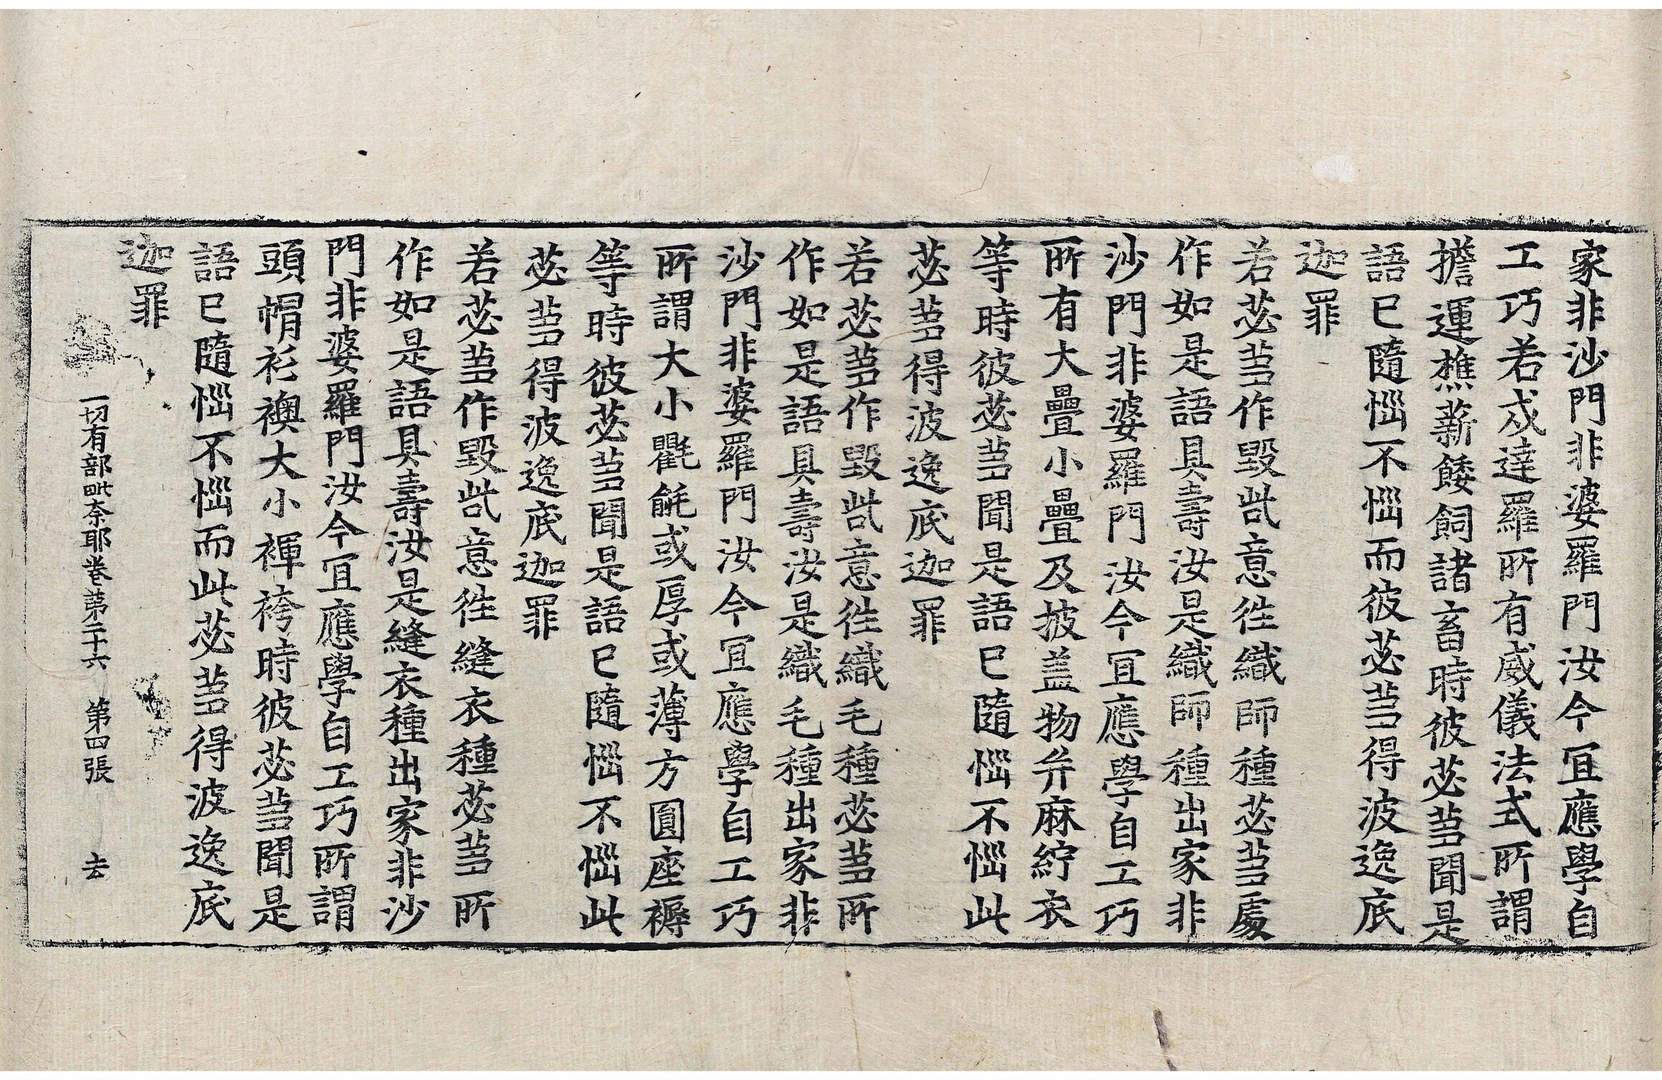 家非沙門非婆羅門汝今冝應學自
工巧若戍達羅所有威儀法式所謂
擔運樵薪餧飼諸畜時彼苾芻聞是
語已隨惱不惱而彼苾芻得波逸底
迦罪
若苾芻作毀呰意徃織師種苾芻處
作如是語具壽汝是織師種出家非
沙門非婆羅門汝今冝應學自工巧
所有大疊小疊及披盖物并麻紵衣
等時彼苾芻聞是語已隨惱不惱此
苾芻得波逸底迦罪
若苾芻作毀呰意徃織毛種苾芻所
作如是語具壽汝是織毛種出家非
沙門非婆羅門汝今冝應學自工巧
所謂大小氍毹或厚或薄方圓座褥
等時彼苾芻聞是語已隨惱不惱此
苾芻得波逸底迦罪
若苾芻作毀呰意徃縫衣種苾芻所
作如是語具壽汝是縫衣種出家非沙
門非婆羅門汝今冝應學自工巧所謂
頭帽衫襖大小褌袴時彼苾芻聞是
語已隨惱不惱而此苾芻得波逸底
迦罪
一切有部毗奈耶卷第二十六 第四張 去